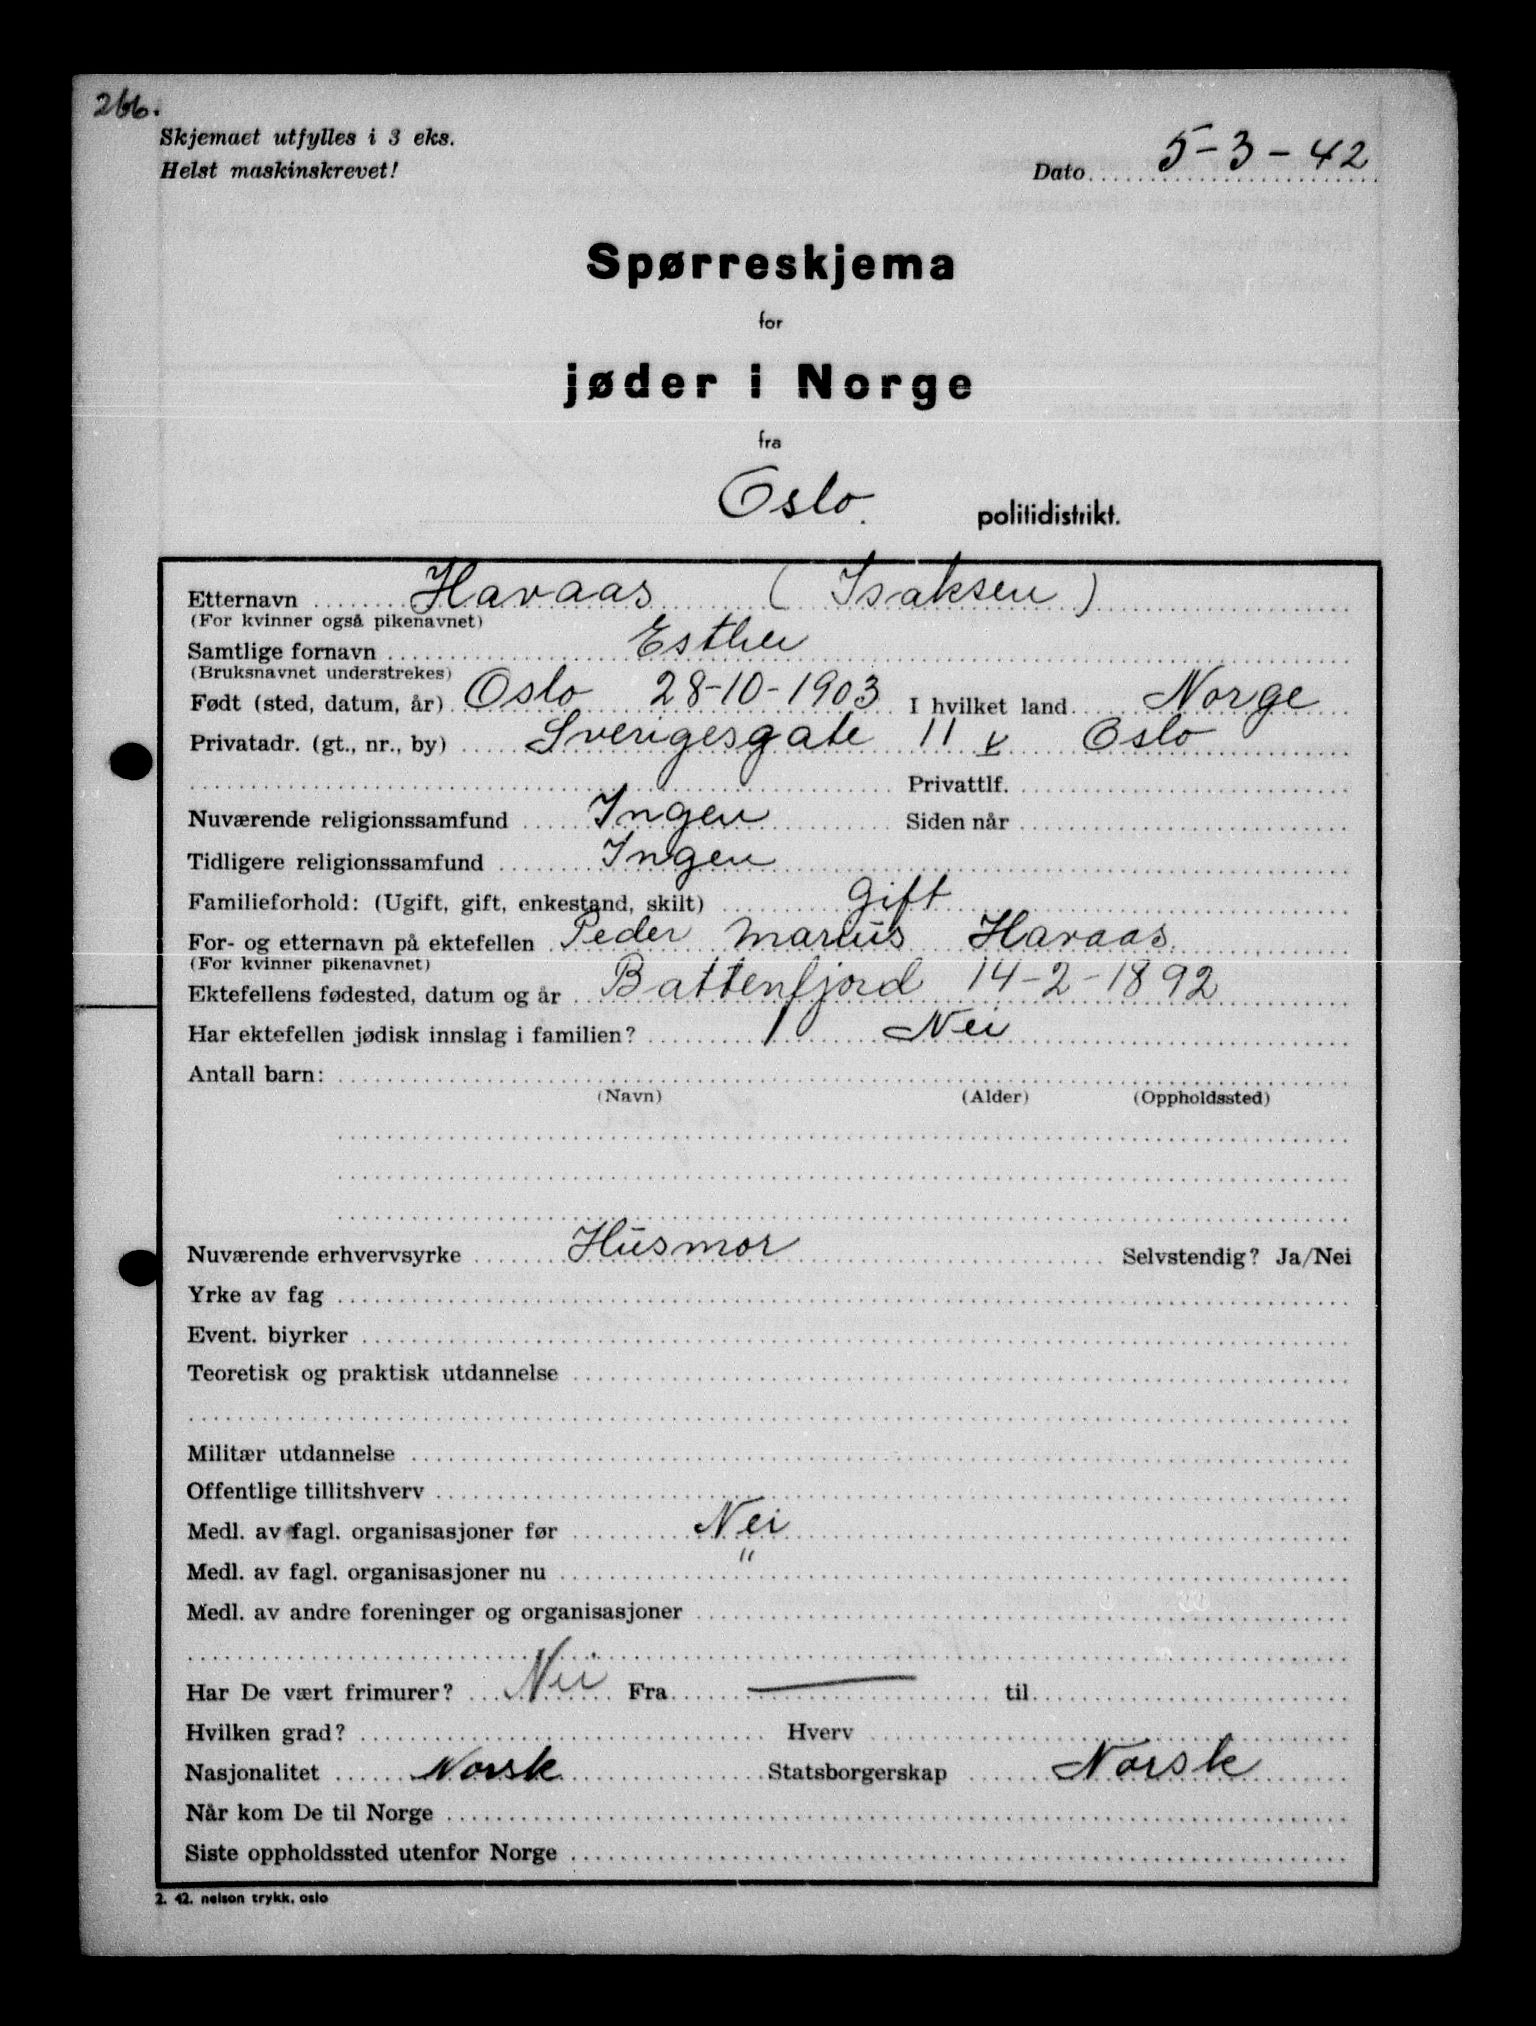 266.
Skjemaet utfylles i 3 eks.
Helst maskinskrevet!
Dato 5-3-42
Spørreskjema
for
jøder i Norge
fra
Oslo. politidistrikt.
Etternavn Havaas (Isaksen)
(For kvinner også pikenavnet)
Samtlige fornavn Esther
(Bruksnavnet understrekes)
Født (sted, datum, år) Oslo 28-10-1903 I hvilket land Norge
Privatadr. (gt., nr., by) Sverigesgate 11 Oslo
Privattlf.
Nuværende religionssamfund Ingen Siden når
Tidligere religionssamfund Ingen
Familieforhold: (Ugift, gift, enkestand, skilt) Gift
For- og etternavn på ektefellen Peder Marius Havaas
(For kvinner pikenavnet)
Ektefellens fødested, datum og år Battenfjord 14-2-1892
Har ektefellen jødisk innslag i familien? Nei
Antall barn:
(Navn) (Alder) (Oppholdssted)
Nuværende erhvervsyrke Husmor Selvstendig? Ja/Nei
Yrke av fag
Event. biyrker
Teoretisk og praktisk utdannelse
Militær utdannelse
Offentlige tillitshverv
Medl. av fagl. organisasjoner før Nei
Medl. av fagl. organisasjoner nu "
Medl. av andre foreninger og organisasjoner
Har De vært frimurer? Nei Fra — til
Hvilken grad? Hverv
Nasjonalitet Norsk Statsborgerskap Norsk
Når kom De til Norge
Siste oppholdssted utenfor Norge
2. 42. nelson trykk, oslo